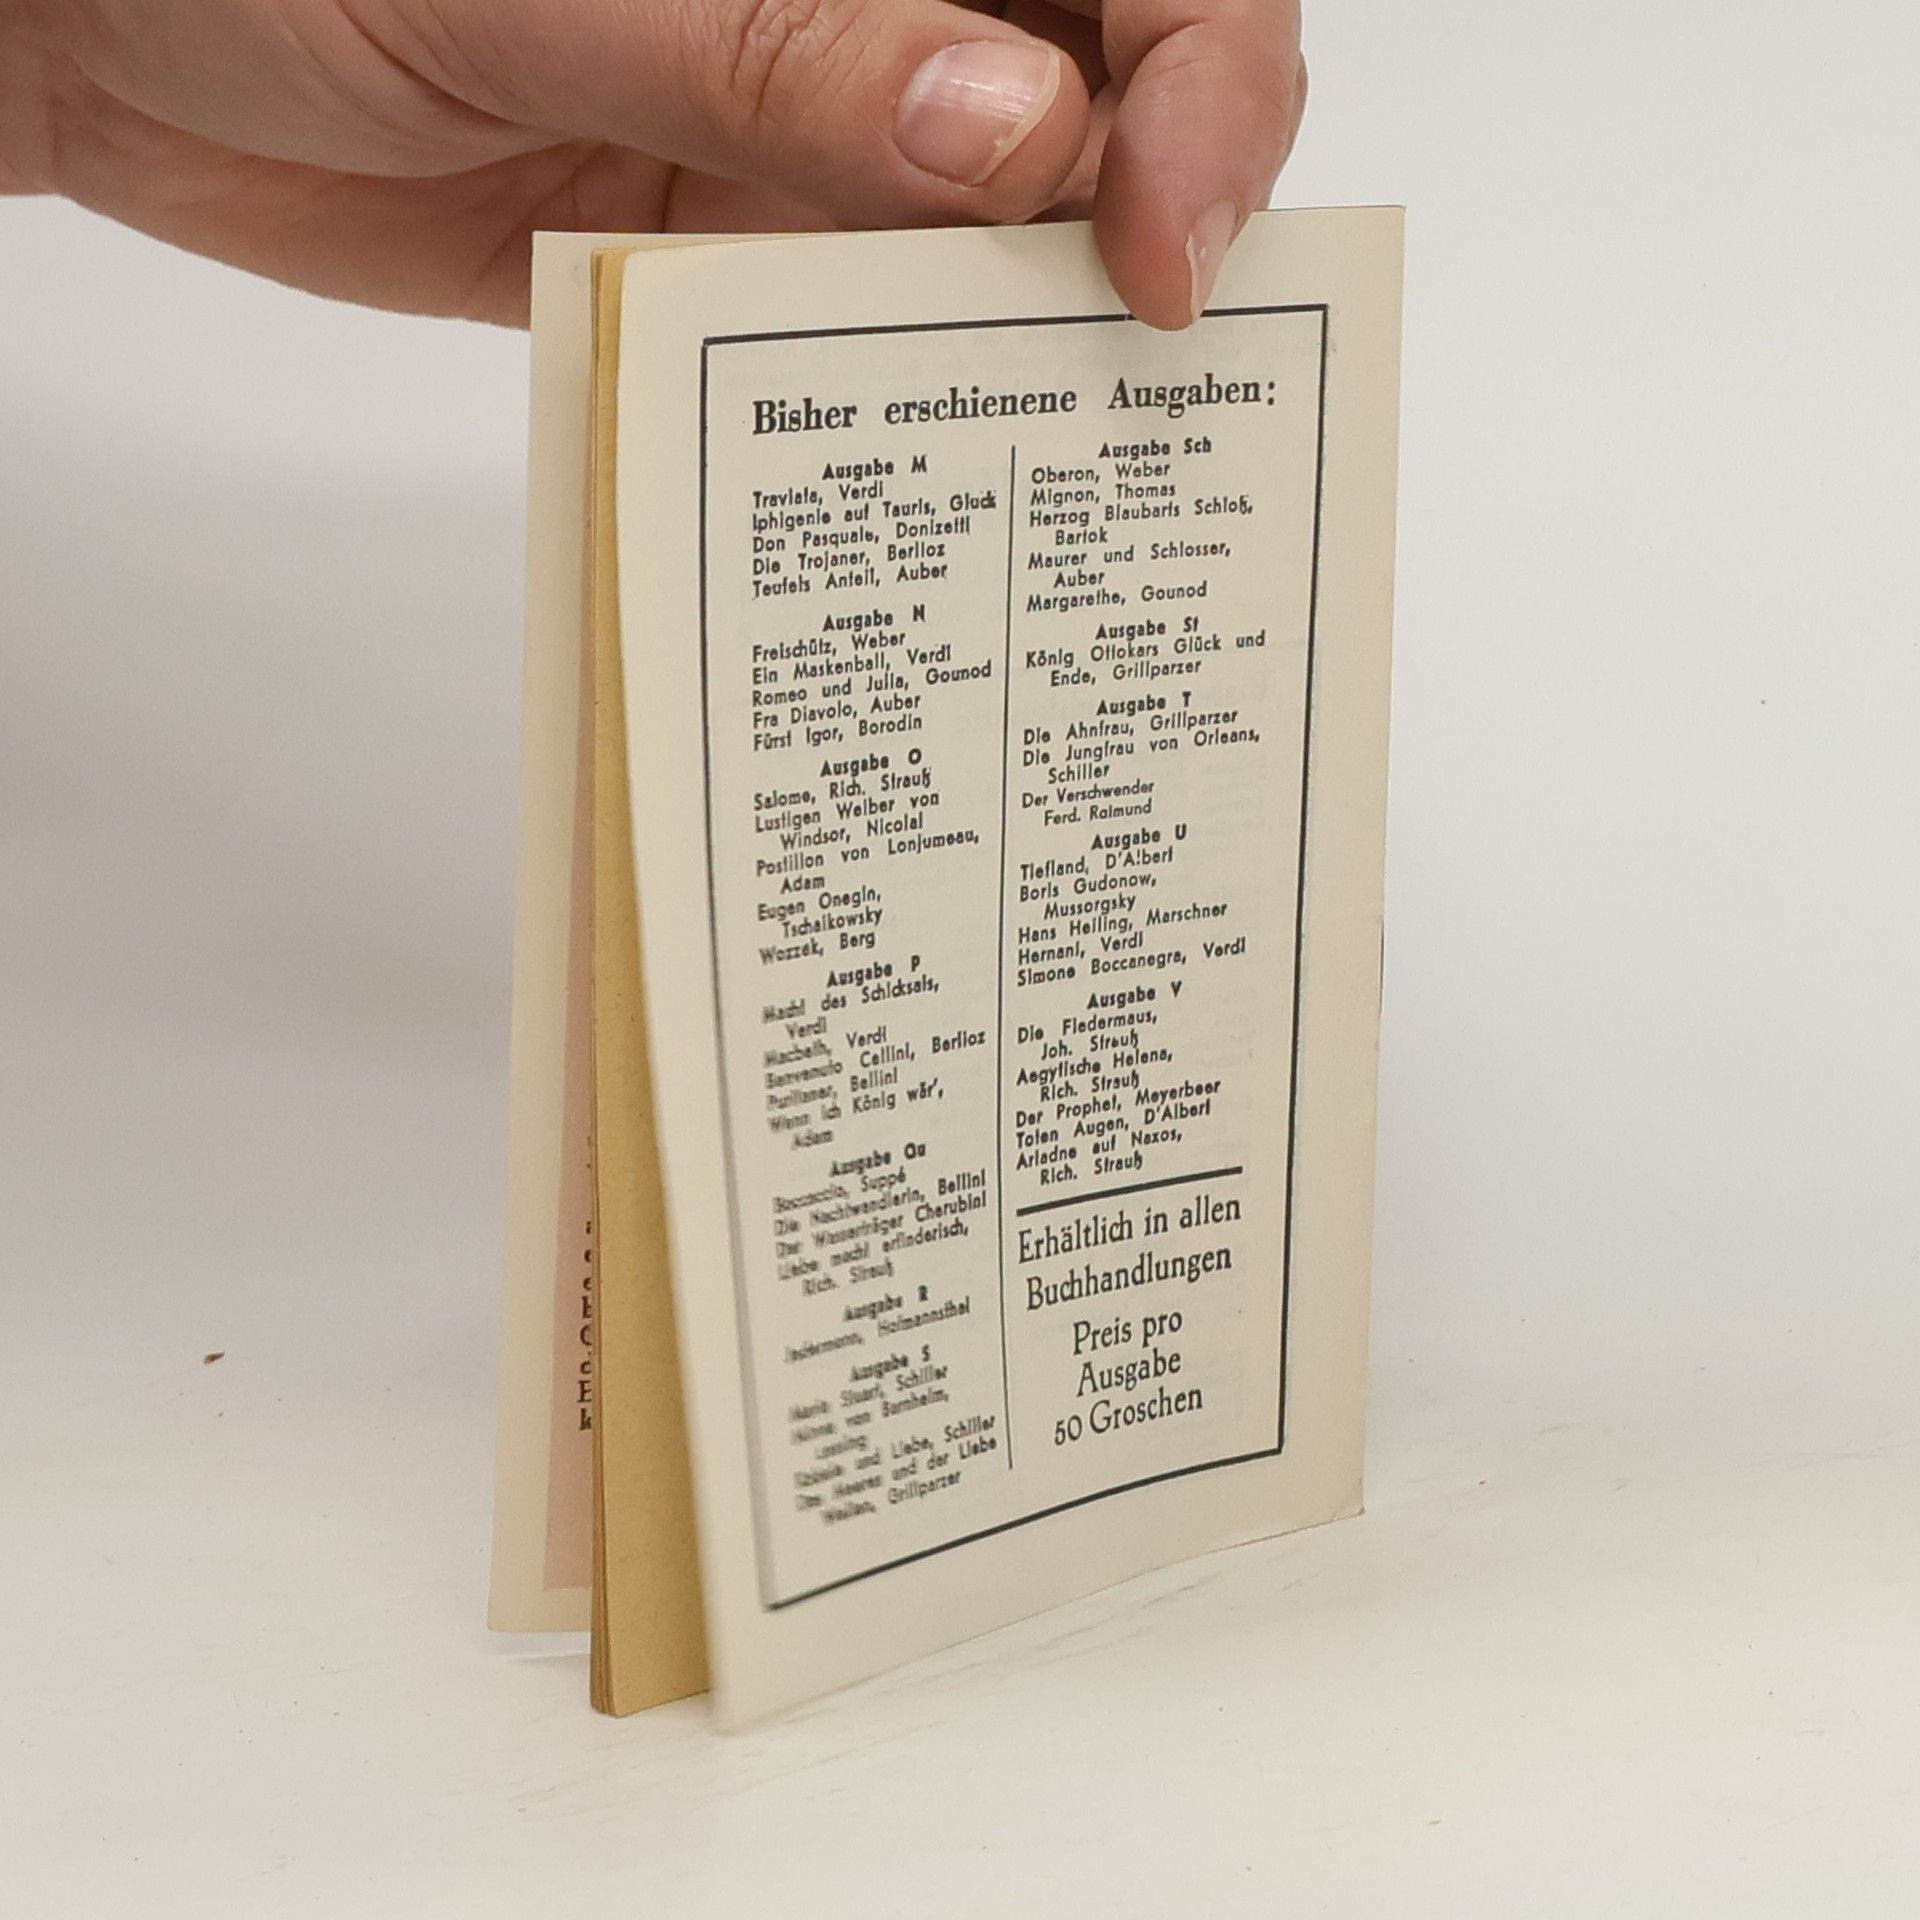 Bisher erschienene Ausgaben:
Ausgabe M
Traviata, Verdi
Iphigenie auf Tauris, Gluck
Don Pasquale, Donizetti
Die Trojaner, Berlioz
Teufels Anteil, Auber
Ausgabe N
Freischütz, Weber
Ein Maskenball, Verdi
Romeo und Julia, Gounod
Fra Diavolo, Auber
Fürst Igor, Borodin
Ausgabe O
Salome, Rich. Strauß
Lustigen Weiber von
Windsor, Nicolai
Postillon von Lonjumeau,
Adam
Eugen Onegin,
Tschaikowsky
Wozzek, Berg
Ausgabe P
Macht des Schicksals,
Verdi
Macbeth, Verdi
Benvenuto Cellini, Berlioz
Puritaner, Bellini
Wenn ich König wär',
Adam
Ausgabe Qu
Boccaccio, Suppé
Die Nachtwandlerin, Bellini
Der Wasserträger Cherubini
Liebe macht erfinderisch,
Rich. Strauß
Ausgabe R
Jedermann, Hofmannsthal
Ausgabe S
Maria Stuart, Schiller
Minna von Barnhelm,
Lessing
Kabale und Liebe, Schiller
Des Meeres und der Liebe
Wellen, Grillparzer
Ausgabe Sch
Oberon, Weber
Mignon, Thomas
Herzog Blaubarts Schloß,
Bartok
Maurer und Schlosser,
Auber
Margarethe, Gounod
Ausgabe St
König Ottokars Glück und
Ende, Grillparzer
Ausgabe T
Die Ahnfrau, Grillparzer
Die Jungfrau von Orleans,
Schiller
Der Verschwender
Ferd. Raimund
Ausgabe U
Tiefland, D'Albert
Boris Gudonow,
Mussorgsky
Hans Heiling, Marschner
Hernani, Verdi
Simone Boccanegra, Verdi
Ausgabe V
Die Fledermaus,
Joh. Strauß
Aegytische Helena,
Rich. Strauß
Der Prophet, Meyerbeer
Toten Augen, D'Albert
Ariadne auf Naxos,
Rich. Strauß
Erhältlich in allen
Buchhandlungen
Preis pro
Ausgabe
50 Groschen